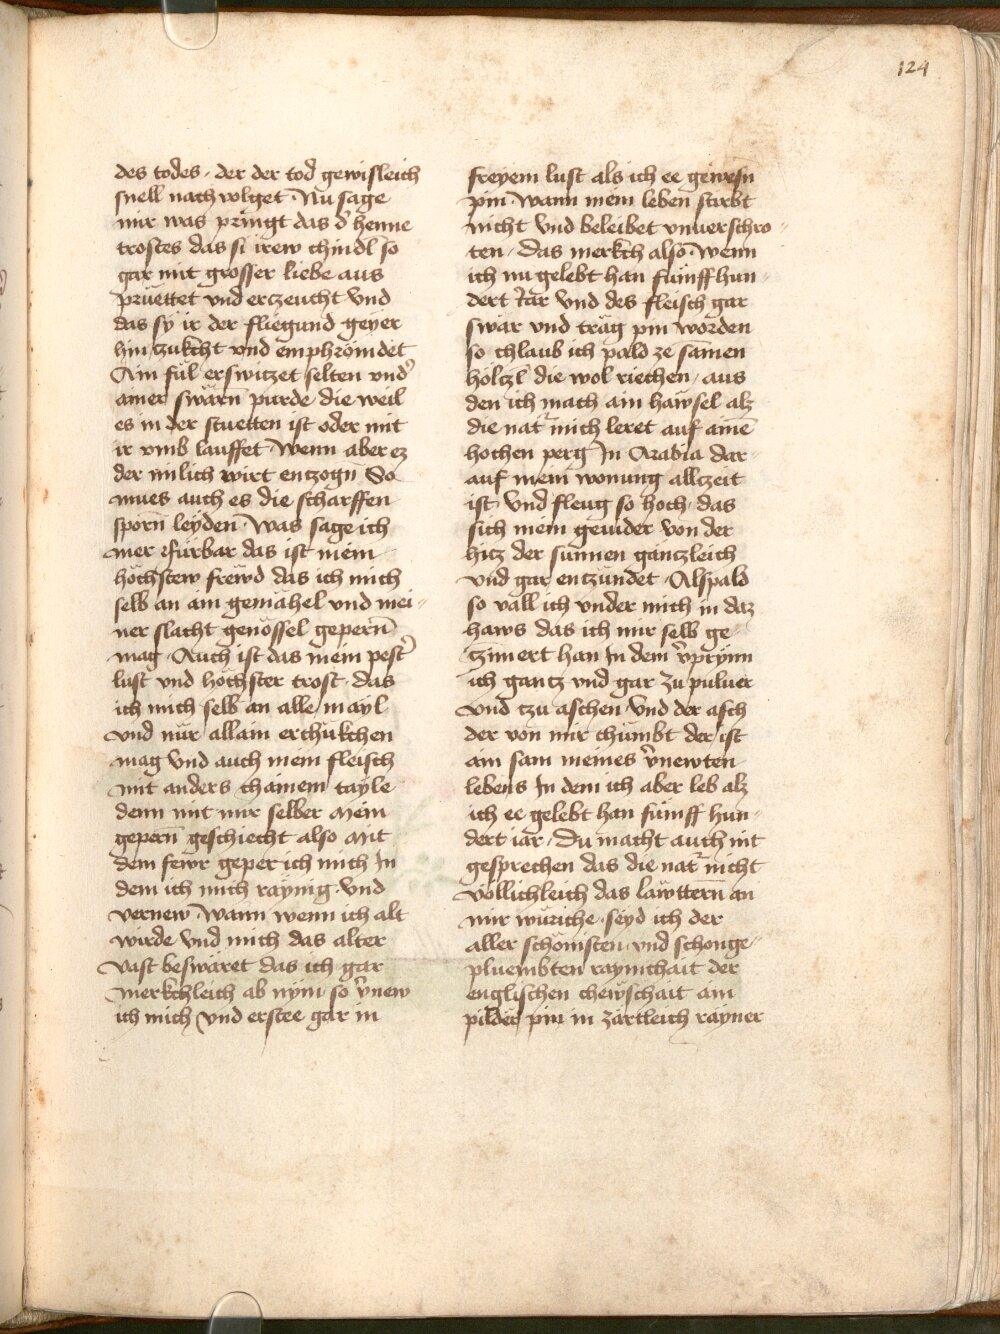 124
des todes · der der tod gewisleich
snell nach volget · Nu sage
mir was pringt das d' henne
trostes das si irew chindl so
gar mit grosser liebe aus
prüettet vnd erczeucht vnd
das sy ir der fliegund geyer
hin zukcht vnd emphrömdet
Ain fül erswitzet selten vnd'
ainer swärn purde die weil
es in der stuetten ist oder mit
ir vmb lauffet · Wenn aber ez
der milich wirt enzogn̄ So
mues auch es die scharffen
sporn̄ leyden · Was sage ich
mer Fürbar das ist mein
höchstew frewd das ich mich
selb an am gemähel vnd mei-
ner slacht genössel gepern̄
mag · Auch ist das mein pest'
lust vnd höchster trost · das
ich mich selb an alle mayl
vnd nür allain erchükchen
mag vnd auch mein fleisch
mit anders chainem tayle
denn mit mir selber Mein
gepern̄ geschiecht also Mit
dem fewr geper ich mich In
dem ich mich raynig · vnd
vernew · Wann wenn ich alt
wirde vnd mich das alter
vast beswäret das ich gar
merkchleich ab nym · so v'new
ich mich vnd erstee gar in
freyem lust als ich ee gewesn̄
pin · Wann mein leben stirbt
nicht vnd beleibet vnuerschro-
ten · Das merkch also · Wenn
ich nu gelebt han fümff hun-
dert Jar vnd des fleisch gar
swär vnd träg pin worden
so chlaub ich pald ze samen
höltzl die wol riechen · aus
den ich mach ain hawsel alz
die nat'r mich leret auf aine̅
hochen perg In Arabia dar-
auf mein wonung allczeit
ist · vnd fleug so hoch · das
sich mein geuider von der
hitz der sunnen gantzleich
vnd gar entzündet · Alspald
so vall ich vnder mich in daz
haws das ich mir selb ge-
zimert han In dem v'prynn
ich gantz vnd gar zu puluer
vnd tzu aschen · vnd der asch
der von mir chümbt der ist
ain sam meines v'newten
lebens In dem ich aber leb alz
ich ee gelebt han fümff hun-
dert iar · Du macht auch nit
gesprechen das die nat'r nicht
völlichleich das lawttern̄ an
mir würche · seyd ich der
aller schönisten · vnd schonge-
pluembten raynichait der
englischen chewschait ain
pilder pin in zärtleich rayner